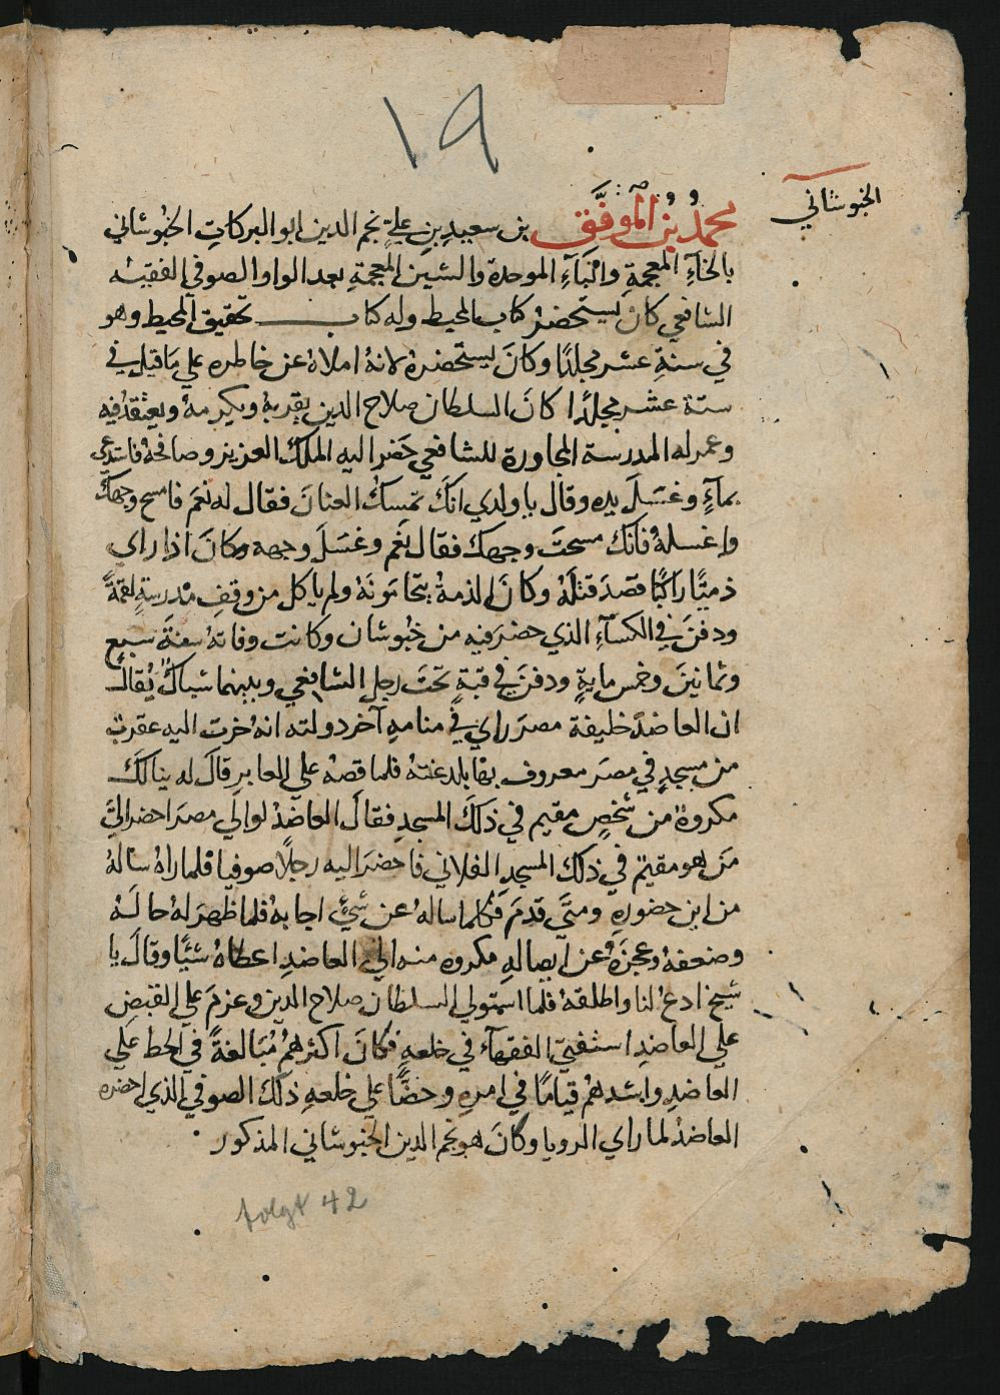 ١٩
الخبوشاني
محمدُ بنُ المُوفَّق بن سعيدِ بنِ عليٍّ نجم الدين ابو البركاتِ الخبُوشاني
بالخآءِ المعجمةِ والبَآءِ الموحدة والشين المعجمةِ بعد الواو الصوفي الفقيه
الشافعي كان يستحضرُ كتاب المحيط وله كتاب تحقيق المحيط وهو
في ستةِ عشر مجلدًا وكانَ يستحضرهُ لانهُ املاهُ عن خاطره علي مَا قيل في
ستة عشر مجلدًا كانَ السلطان صلاح الدين يقربهُ ويكرمهُ ويعتقدُ فيه
وعمر له المدرسة المجاورة للشافعي حَضر اليه الملك العزيز وصافحهُ فاستدعي
بمآءٍ وغسَلَ يده وقال يا ولدي انكَ تمسكُ العنانَ فقال له نعَم فامسح وجهكَ
واغسلهُ فانكَ مسحتَ وجهك فقال نَعَم وغسَلَ وجهه وكانَ اذا راي
ذميًّا راكبًا قصَدَ قتلَهُ وكانَ الذمةُ يتحامَونَهُ ولم ياكل من وقفِ مدرسةٍ لقمةً
ودفنَ في الكسآءِ الذي حضرَ فيه من خبُوشان وكانت وفاتهُ سنةَ سبع
وثمانينَ وخمس مايةٍ ودفنَ في قبةٍ تحتَ رجلِ الشافعي وبينهما شباكٌ يُقالُ
ان العاضدَ خليفة مصرَ راي في منامهِ آخر دولته انهُ خرت اليه عقربٌ
من مسجدٍ في مصرَ معروف بها فلدغتهُ فلما قصهُ علي المعابرِ قالَ له ينالكَ
مكروهٌ من شخصٍ مقيم في ذلكَ المسجدِ فقالَ العاضدُ لوالي مصرَ احضر اليَّ
مَن هو مقيمٌ في ذلك المسجدِ الفلاني فاحضرَ اليه رجلًا صوفيا فلما راهُ سالهُ
من اين حضورهِ ومتَي قدمَ فكلما سالهُ عن شئٍ اجابهُ فلما ظهرَ لهُ حالهُ
وضعفهُ وعجزهُ عن ايصالِ مكروه منه الي العاضدِ اعطاهُ شيئًا وقالَ يا
شيخ ادعُ لنا واطلقهُ فلما استولي السلطان صلاح الدين وعزمَ علي القبضِ
علي العاضدِ استفتيَ الفقهآءَ في خلعهِ فكانَ اكثرهُم مُبالغةً في الحط علي
العاضدِ واشدهُم قيامًا في امرهِ وحضًّا علي خلعهِ ذلكَ الصوفي الذي احضره
العاضدُ لما راي الرويا وكانَ هو نجم الدين الخبوشاني المذكور
folgt 42